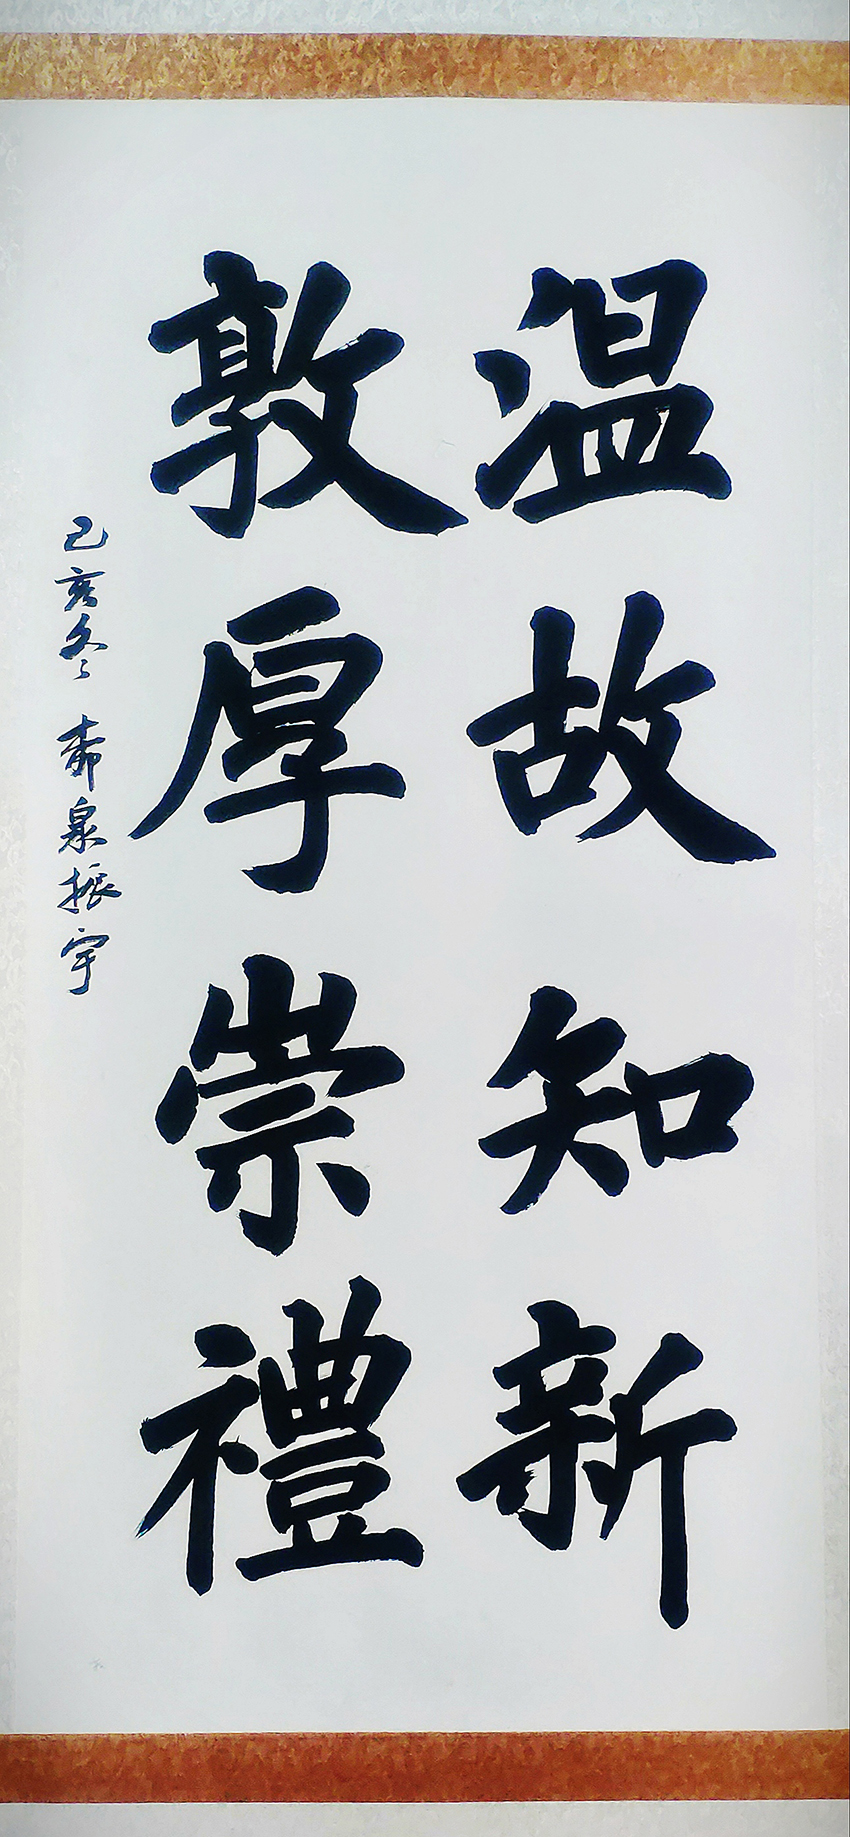 温故知新
敦厚崇禮
己亥冬 泉振宇